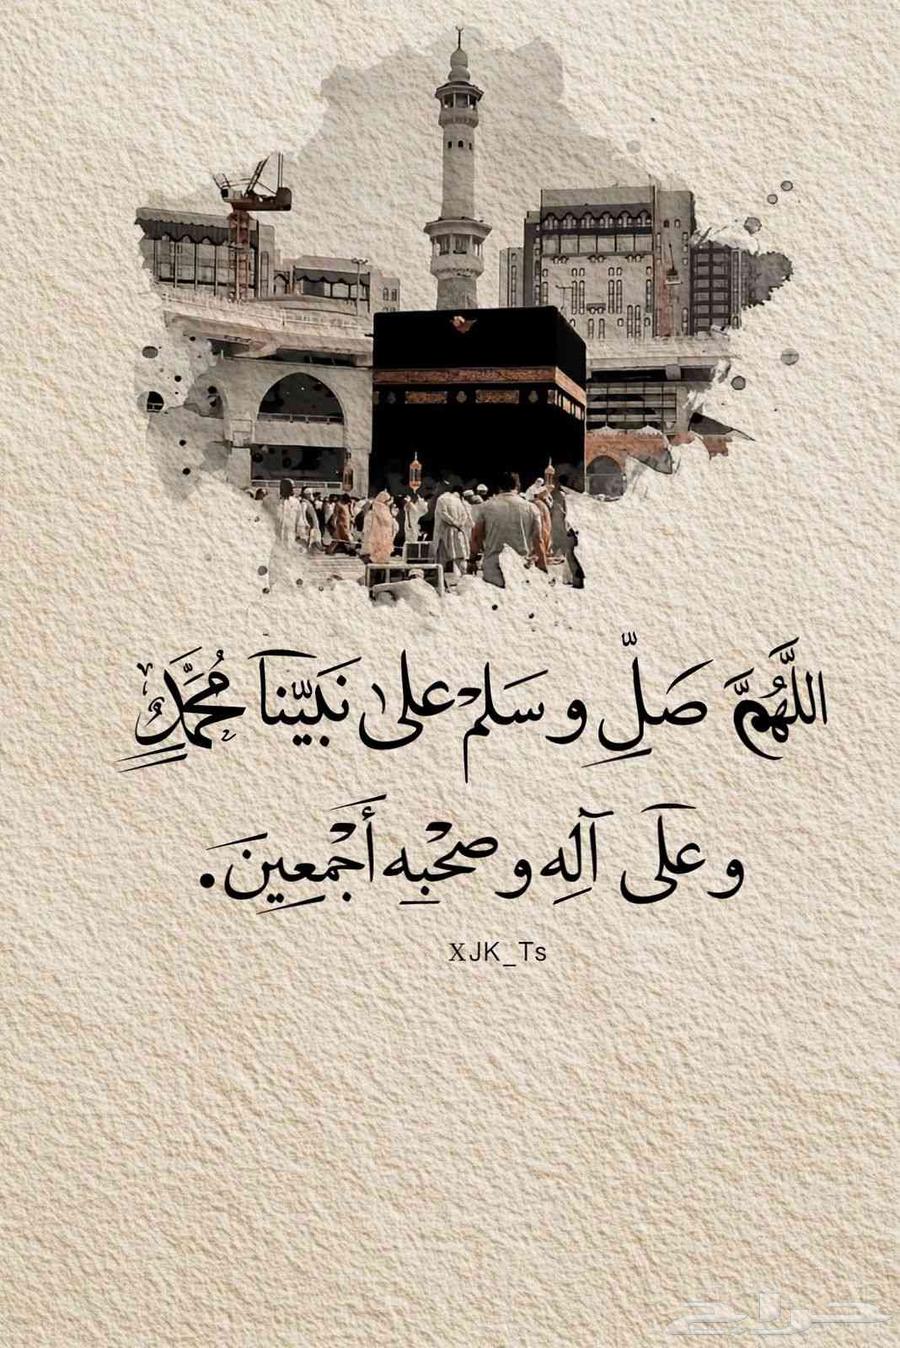 اللَّهُمَّ صَلِّ و سَلمْ علىٰ نَبَيّنَا مُحمَّدٍ
و علَى آلِه و صحْبِه أَجْمعِينَ.
XJK_Ts
حراج